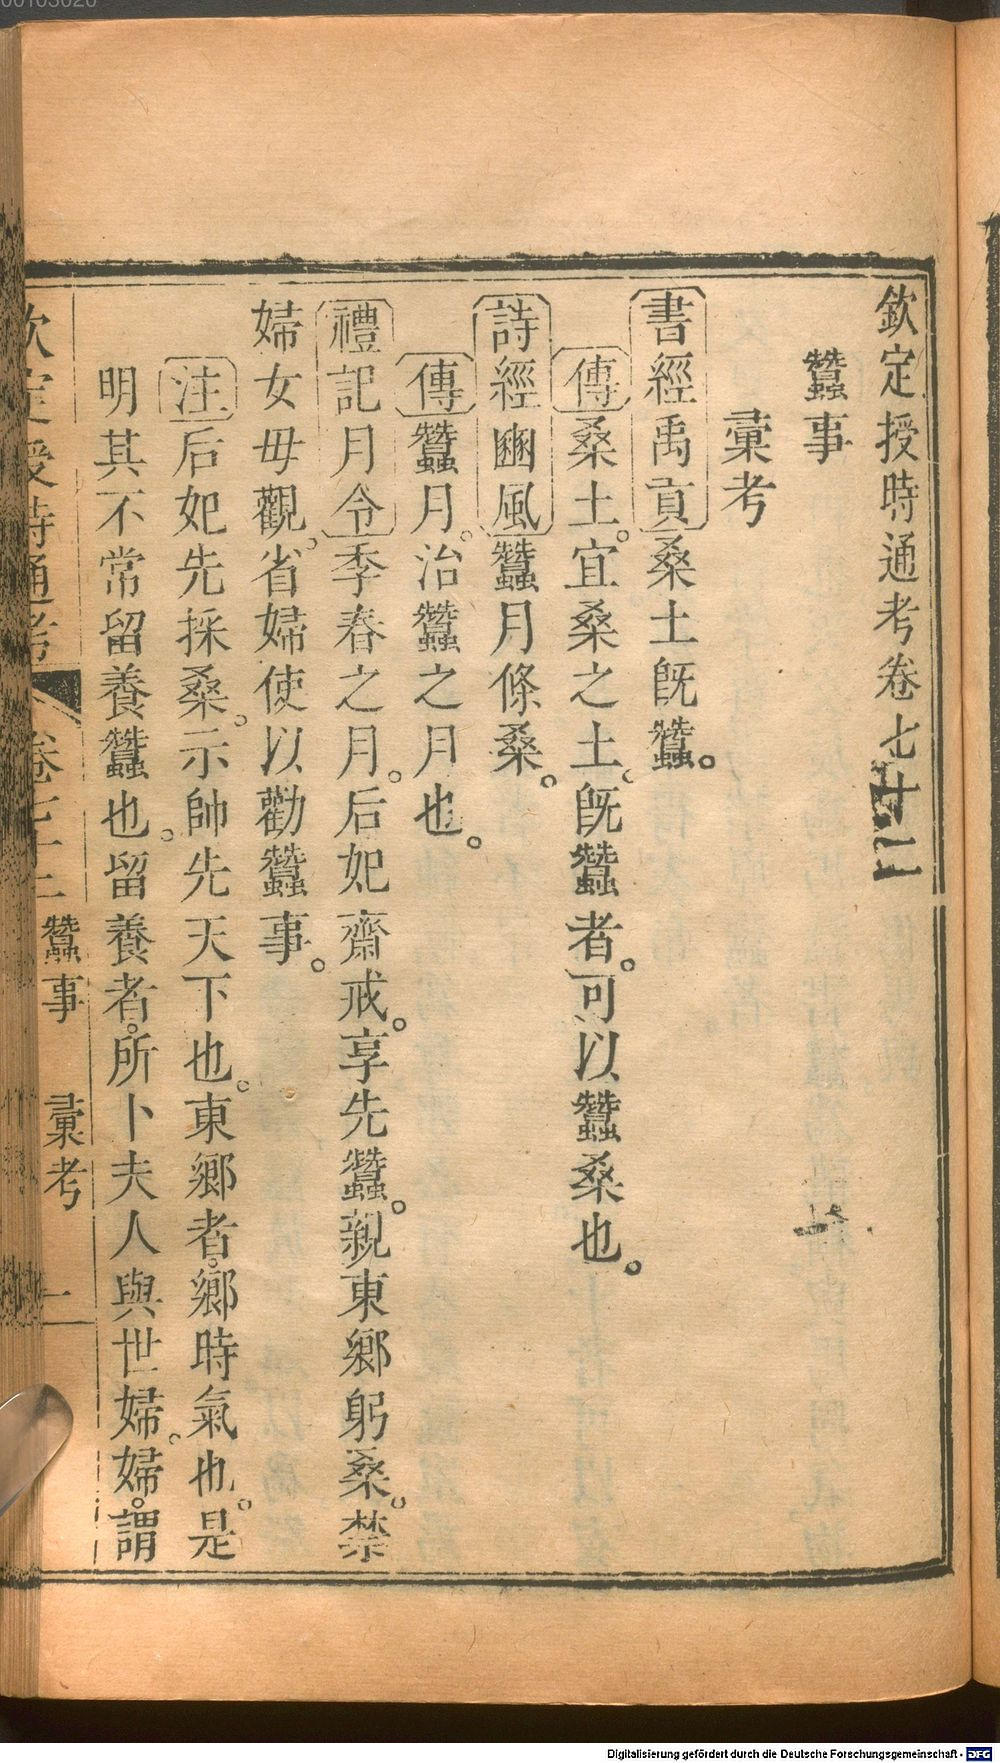 欽定授時通考卷七十二
蠶事
彚考
書經禹貢桑土既蠶。
傳桑土。宜桑之土。既蠶者。可以蠶桑也。
詩經豳風蠶月條桑。
傳蠶月。治蠶之月也。
禮記月令季春之月。后妃齋戒。享先蠶。親東鄉躬桑。禁
婦女毋觀。省婦使以勸蠶事。
注后妃先採桑。示帥先天下也。東鄉者。鄉時氣也。是
明其不常留養蠶也。留養者。所卜夫人與世婦。婦。謂
欽定授時通考 卷七十二 蠶事 彚考 一
00103020
Digitalisierung gefördert durch die Deutsche Forschungsgemeinschaft - DFG